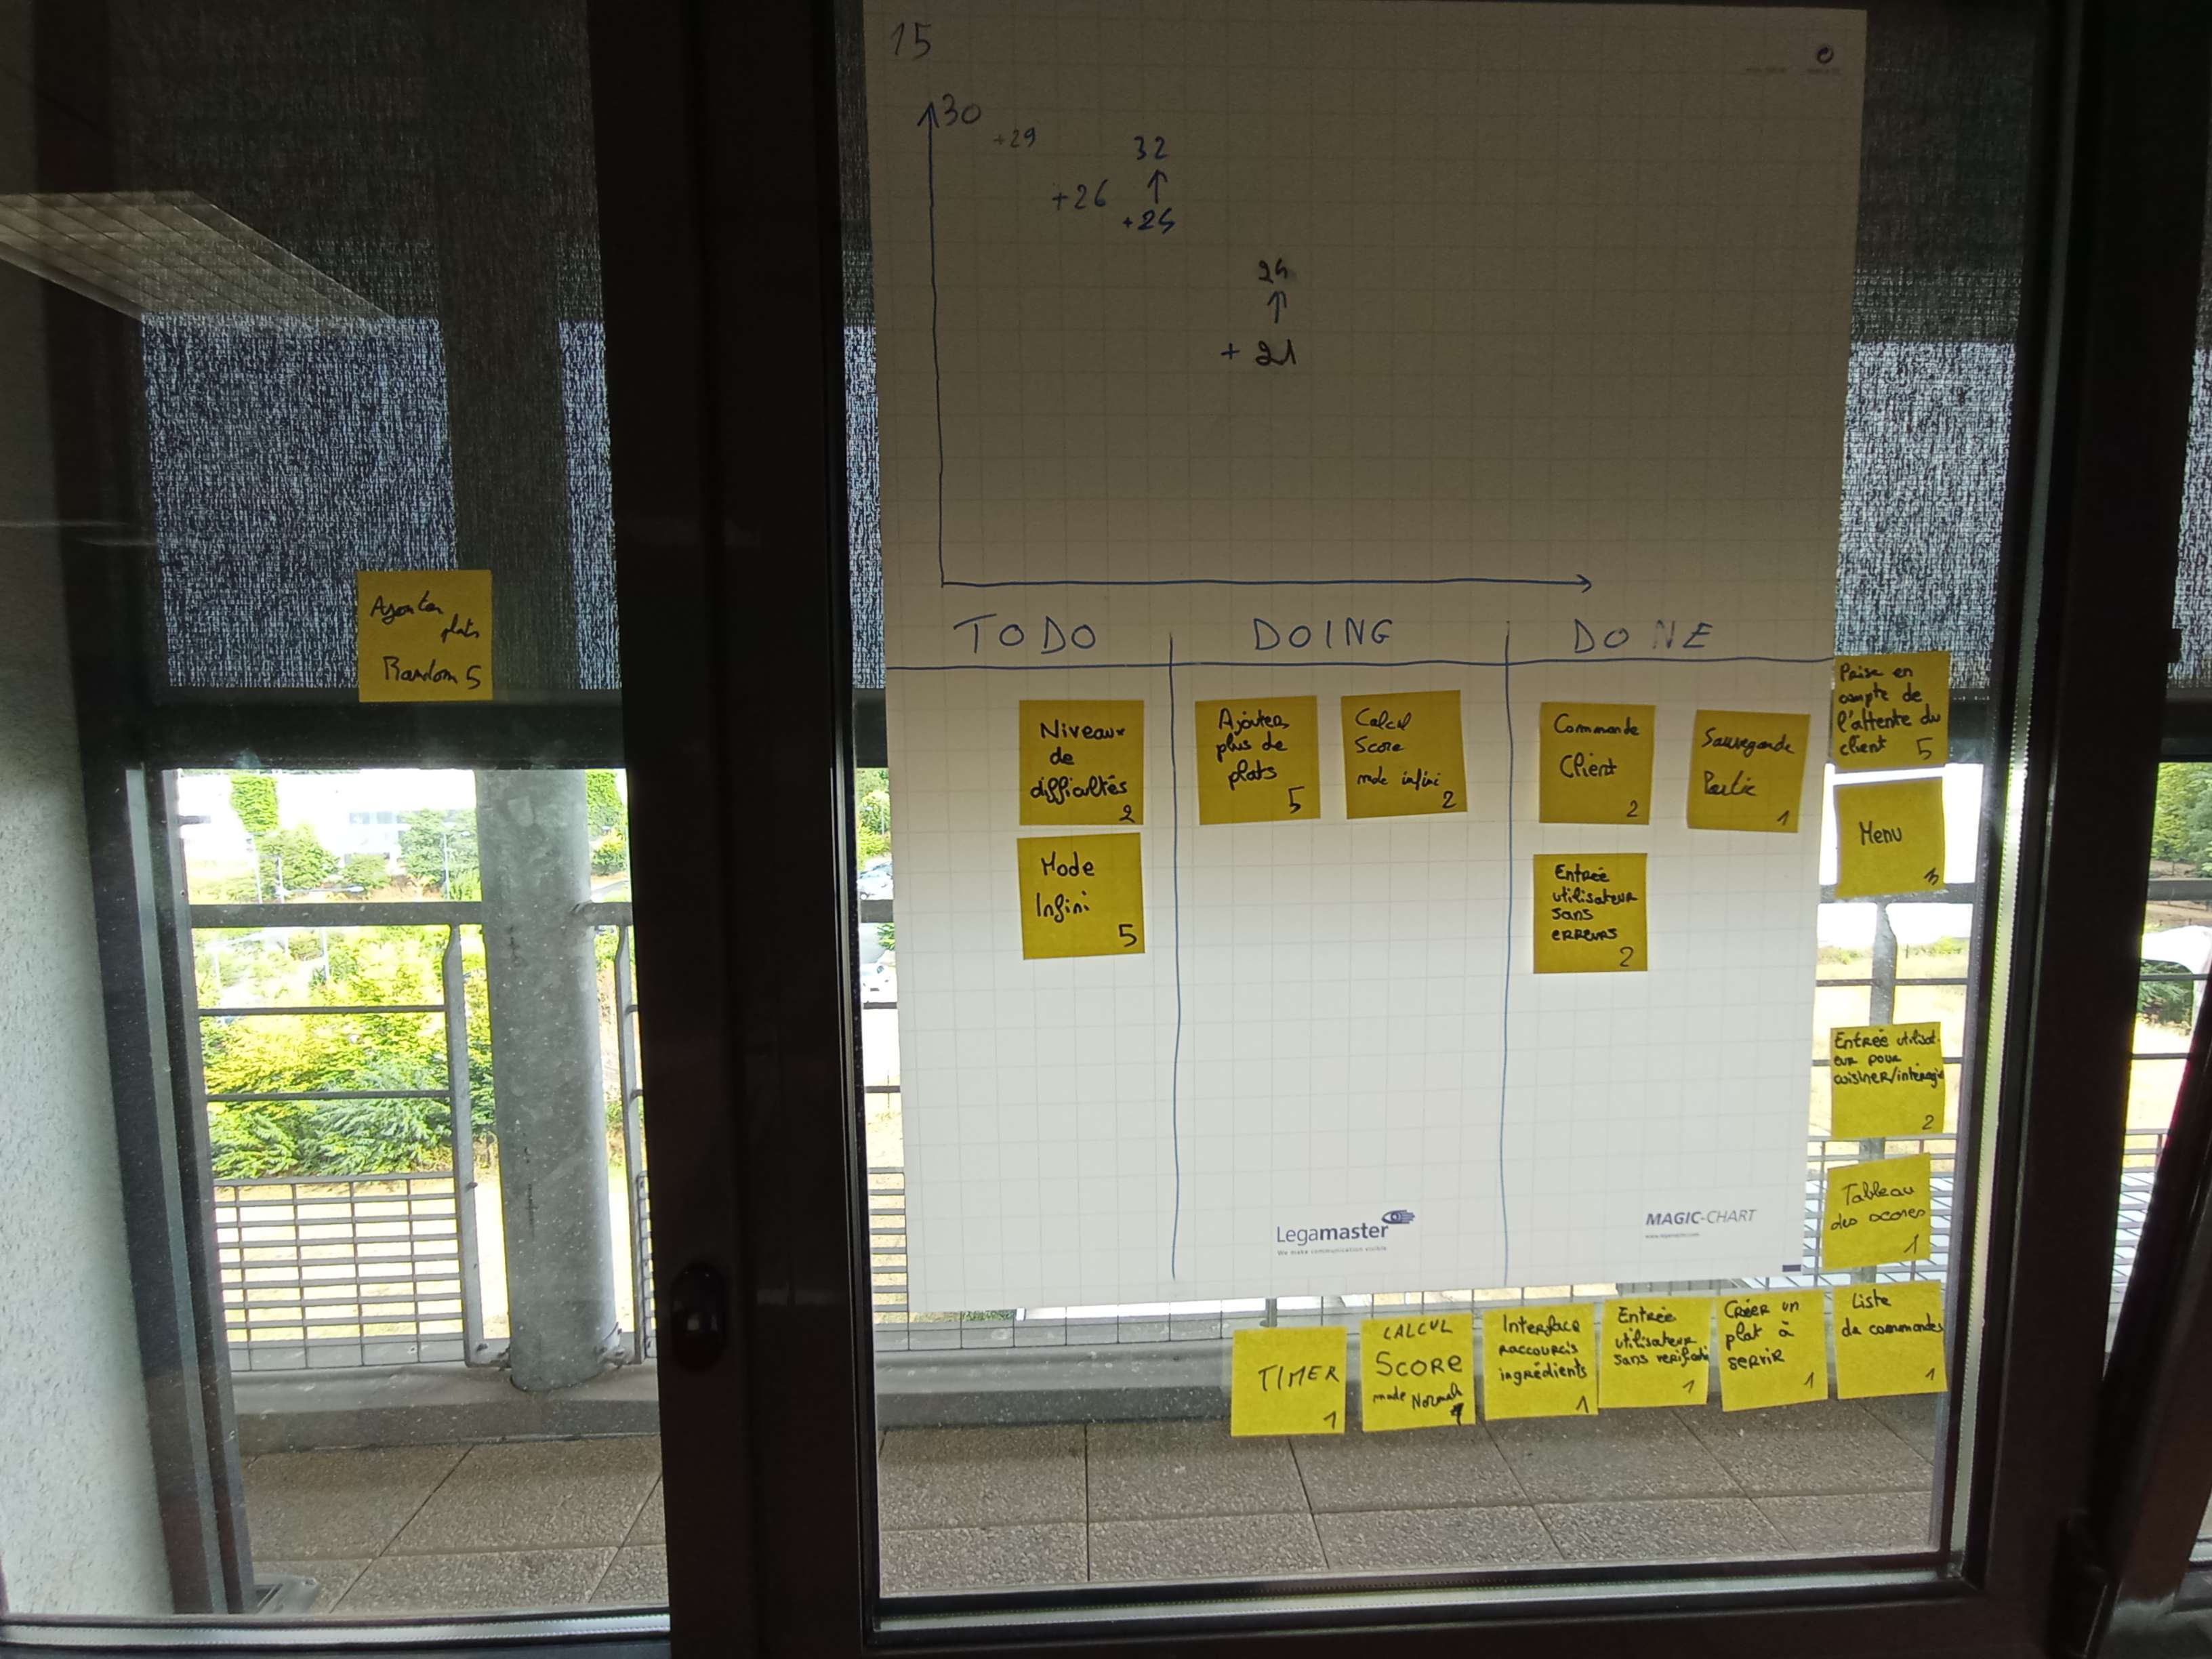 15
30
+29
32
+26
+25
24
+ 21
TODO
DOING
DONE
Ajouter
plats
Random 5
Niveaux
de
difficultés
2
Mode
Infini
5
Ajouter
plus de
plats
5
Calcul
Score
mode infini
2
Commande
Client
2
Sauvegarde
Partie
1
Entrée
utilisateur
sans
erreurs
2
Prise en
compte de
l'attente du
client 5
Menu
Entrée utilisat-
eur pour
cuisiner/interagir
2
Tableau
des scores
1
Legamaster
We make communication visible
MAGIC-CHART
www.legamaster.com
TIMER
1
CALCUL
SCORE
mode Normal
Interface
raccourcis
ingrédients
1
Entrée
utilisateur
sans verificati
1
Créer un
plat à
servir
1
Liste
de commandes
1